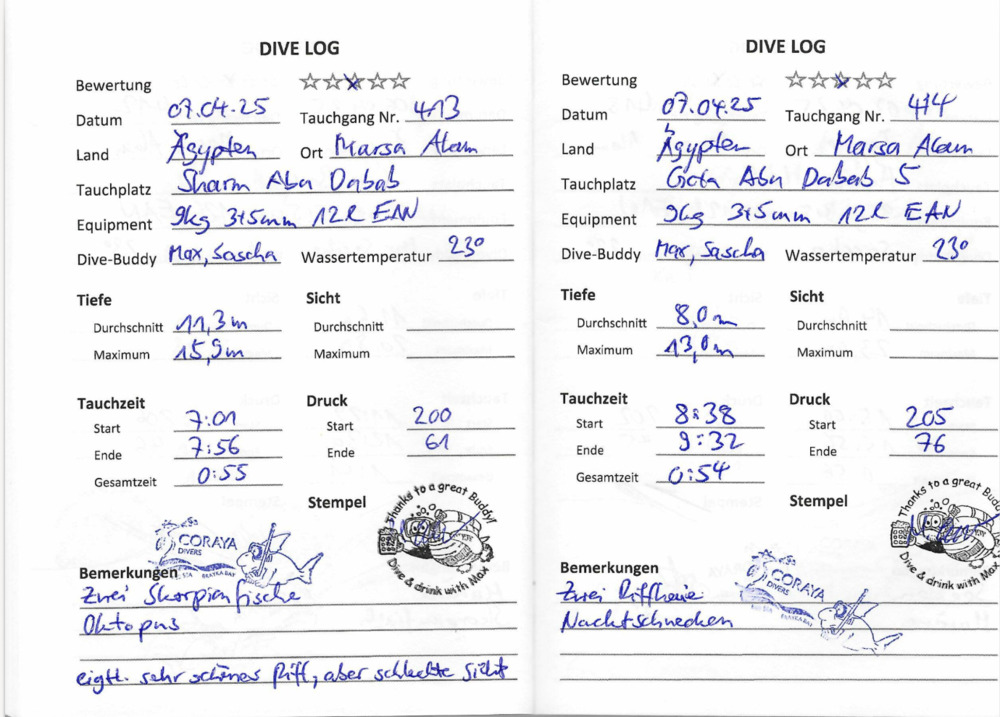 DIVE LOG
Bewertung ☆☆☆☆☆
Datum 07.04.25 Tauchgang Nr. 413
Land Ägypten Ort Marsa Alam
Tauchplatz Sharm Abu Dabab
Equipment 9kg 3+5mm 12l EAN
Dive-Buddy Max, Sascha Wassertemperatur 23°
Tiefe Sicht
Durchschnitt 11,3m Durchschnitt
Maximum 15,9m Maximum
Tauchzeit Druck
Start 7:01 Start 200
Ende 7:56 Ende 61
Gesamtzeit 0:55
Stempel
Thanks to a great Buddy!
Dive & drink with Max
CORAYA
DIVERS
Bemerkungen
Zwei Skorpionfische
Oktopus
eigtl. sehr schönes Riff, aber schlechte Sicht
DIVE LOG
Bewertung ☆☆☆☆☆
Datum 07.04.25 Tauchgang Nr. 414
Land Ägypten Ort Marsa Alam
Tauchplatz Gota Abu Dabab 5
Equipment 9kg 3+5mm 12l EAN
Dive-Buddy Max, Sascha Wassertemperatur 23°
Tiefe Sicht
Durchschnitt 8,0m Durchschnitt
Maximum 13,0m Maximum
Tauchzeit Druck
Start 8:38 Start 205
Ende 9:32 Ende 76
Gesamtzeit 0:54
Stempel
Thanks to a great Budd
Dive & drink with Max
CORAYA
DIVERS
Bemerkungen
Zwei Riffhaie
Nacktschnecken